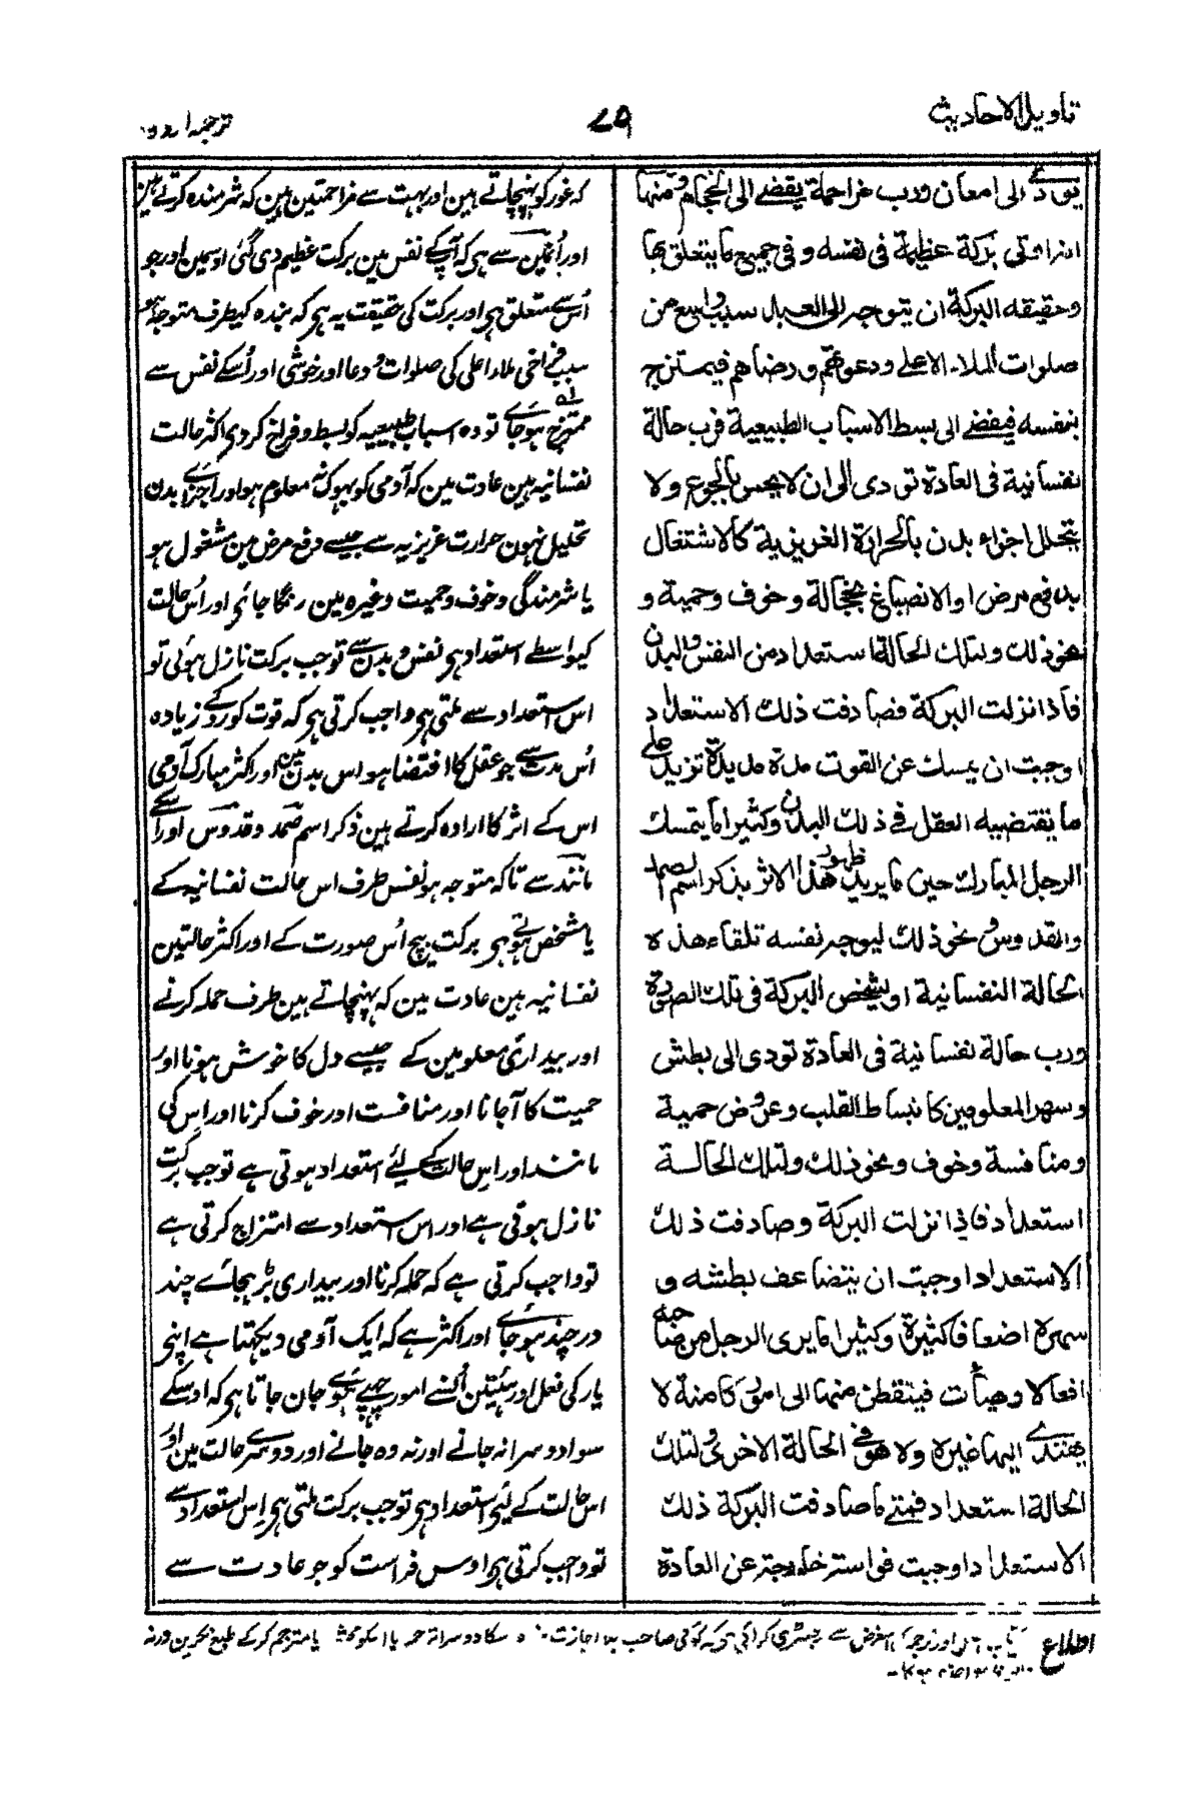 تاویل الاحادیث
۷۹
ترجمہ اردو
یودی الی امعان ورب مزاحمة یفضے الی الحجام ومنها
انہ اوتی برکة عظیمة فی نفسه وفی جمیع ما یتعلق بها
وحقیقه البرکة ان یتوجہ الی العبد سبب واسع من
صلوات الملاء الاعلے ودعوتهم ورضاهم فیمتزج
بنفسه فیفضے الی بسط الاسباب الطبیعیة فرب حالة
نفسانیة فی العادة تودی الی ان لا یحس بالجوع ولا
یتحلل اجزاء بدن بالحرارة الغریزیة کالاشتغال
بدفع مرض او الانصباغ بخجالة وخوف وحمیة و
نحو ذلك ولتلك الحالة استعداد من النفس والبدن
فاذا نزلت البرکة فصادفت ذلك الاستعداد
اوجبت ان یمسك عن القوت مدة مدیدة تزید علے
ما یقتضیه العقل فی ذلك البدن وکثیرا ما یتمسك
الرجل المبارك حین ما یرید ظهور هذا الاثر بذکر اسم الصمد
والقدوس ونحو ذلك لیوجہ نفسه تلقاء هذه
الحالة النفسانیة او یشخص البرکة فی تلك الصورة
ورب حالة نفسانیة فی العادة تودی الی بطش
وسهر المعلومین کانبساط القلب وعروض حمیة
ومنافسة وخوف ونحو ذلك ولتلك الحالة
استعداد فاذا نزلت البرکة وصادفت ذلك
الاستعداد اوجبت ان یتضاعف بطشه و
سهره اضعافا کثیرة وکثیرا ما یری الرجل من صاحبه
افعالا وهیأت فیتفطن منها الی امور کامنة لا
یهتدے الیها غیره ولا هو فی الحالة الاخری ولتلك
الحالة استعداد فمتے ما صادفت البرکة ذلك
الاستعداد اوجبت فراسة خارجة عن العادة
کہ غور کو پہنچاتے ہین اور بہت سے مزاحمتین ہین کہ شرمندہ کرتے ہین
اور اُنمین سے ہی کہ آپکے نفس مین برکت عظیم دی گئی اوسمین اور جو
اُس سے متعلق ہی اور برکت کی حقیقت یہ ہی کہ بندہ کیطرف متوجہ ہو
سبب فراخی ملاء اعلی کی صلوات و دعا اور خوشی اور اُسکے نفس سے
ممتزج ہو جائے تو وہ اسباب طبیعیہ کو بسط و فراخ کر دی اکثر حالت
نفسانیہ ہین عادت مین کہ آدمی کو بہوک نہ معلوم ہو اور اجزائے بدن
تحلیل نہون حرارت غریزیہ سے جیسے دفع مرض مین مشغول ہو
یا شرمندگی و خوف و حمیت وغیرہ مین رنگا جائی اور اُس حالت
کیواسطے استعداد ہی نفس و بدن سے تو جب برکت نازل ہوئی تو
اس استعداد سے ملتی ہی واجب کرتی ہی کہ قوت کو روکے زیادہ
اُس مدت سے جو عقل کا اقتضا ہو اس بدن مین اور اکثر مبارک آدمی
اس کے اثر کا ارادہ کرتے ہین ذکر اسم صمد و قدوس اور اسے
مانند سے تاکہ متوجہ ہو نفس طرف اس حالت نفسانیہ کے
یا مشخص ہوتی ہی برکت بیچ اُس صورت کے اور اکثر حالتین
نفسانیہ ہین عادت مین کہ پہنچاتے ہین طرف حملہ کرنے
اور بیداری معلومین کے جیسے دل کا خوش ہونا اور
حمیت کا آجانا اور منافست اور خوف کرنا اور اس کی
مانند اور اس حالت کے لئے استعداد ہوتی ہے تو جب برکت
نازل ہوتی ہے اور اس استعداد سے امتزاج کرتی ہے
تو واجب کرتی ہے کہ حملہ کرنا اور بیداری بڑہجائے چند
در چند ہو جائے اور اکثر ہے کہ ایک آدمی دیکہتا ہے اپنی
یار کی فعل اور ہیئتین اُنسے امور چہپے ہوئے جان جاتا ہی کہ اوسکے
سوا دوسرا نہ جانے اور نہ وہ جانے اور دوسرے حالت مین اور
اس حالت کے لیئے استعداد ہی تو جب برکت ملتی ہی اس استعداد سے
تو واجب کرتی ہی اوس فراست کو جو عادت سے
اطلاع کتاب اور ترجمہ اس غرض سے رجسٹری کرائی ہی کہ کوئی صاحب بلا اجازت اسکا دوسرا ترجمہ یا اسکو یا مترجم کرکے طبع نکرین ورنہ